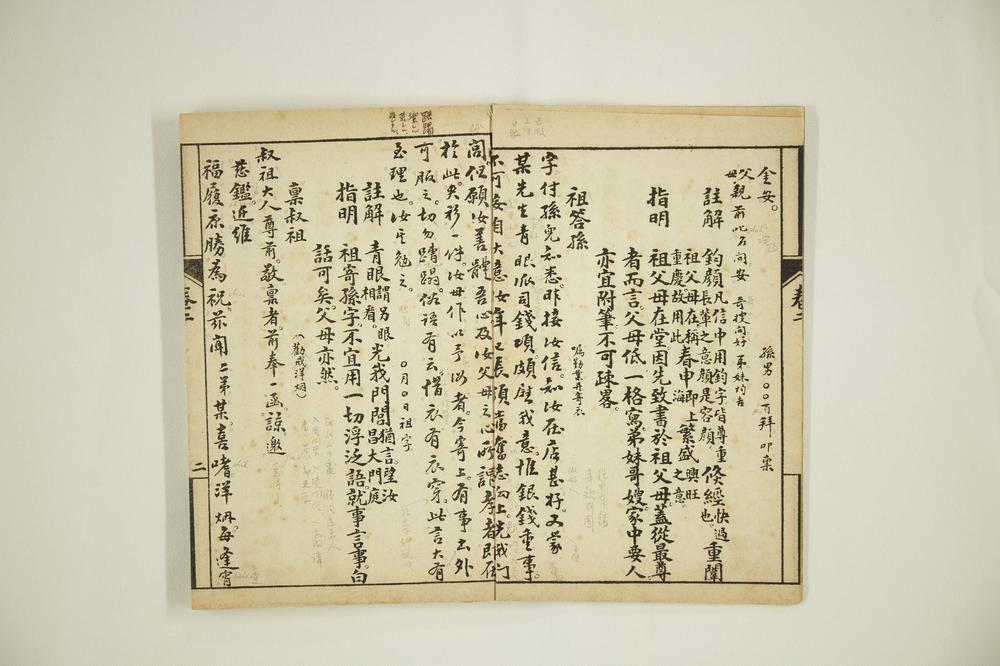 金安。
父母親前叱名问安 哥嫂问好 弟妹均吉
孫男〇〇百拜叩稟
註解 鈞顏凡信中用鈞字皆尊重 倏經快過也。重闈
長輩之意顏是容顏。
祖父母在稱春申即上繁盛興旺
重慶故用此 海 之意。
指明 祖父母在堂因先致書於祖父母蓋從最尊
者而言。父母低一格寫弟妹哥嫂家中要人。
亦宜附筆不可疎畧。
祖答孫 嘱勤業并寄衣
字付孫兒知悉昨接汝信。知汝在店甚好又蒙
某先生青眼派司錢項。頗慰我意。惟銀錢重事。
不可妄自大意汝年已長須當奮志向上。光我门
閭。但願汝善體吾心及汝父母之心所謂孝者即在
於此夹衫一件。汝母作以予汝者。今寄上。有事出外
可服之。切勿蹧蹋。俗语有云。惜衣有衣穿。此言大有
至理也。汝其勉之。 〇月〇日 祖字
註解 青眼謂另眼相看。光我門閭猶言望汝昌大門庭
指明 祖寄孫字。不宜用一切浮泛語。就事言事。白
話可矣。父母亦然。
稟叔祖 (勸戒洋烟)
叔祖大人尊前。敬稟者。前奉一函諒邀
慈鑑。近維
福履康勝為祝。茲闻二弟某。喜嗜洋烟。每逢宵
卷二
二
蹧蹋